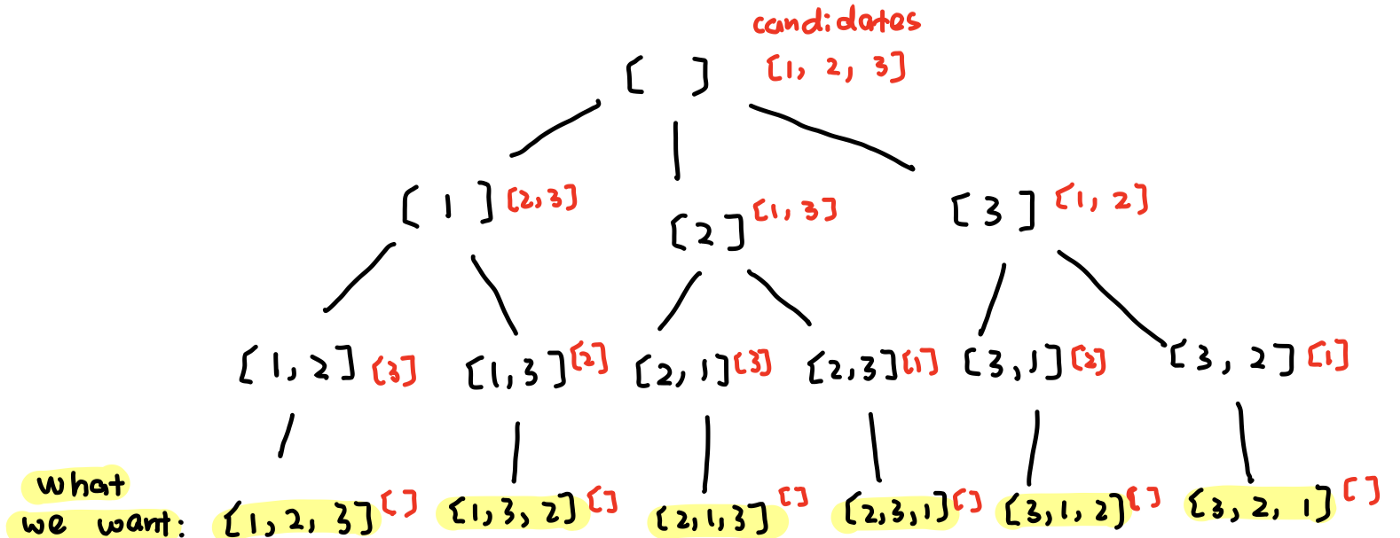 candidates
[ ] [1, 2, 3]
[ 1 ] [2,3] [2] [1, 3] [3] [1, 2]
[1,2] [3] [1,3] [2] [2,1] [3] [2,3] [1] [3,1] [2] [3, 2] [1]
what
we want: [1, 2, 3] [ ] [1,3,2] [ ] [2,1,3] [ ] [2,3,1] [ ] [3,1,2] [ ] [3, 2, 1] [ ]